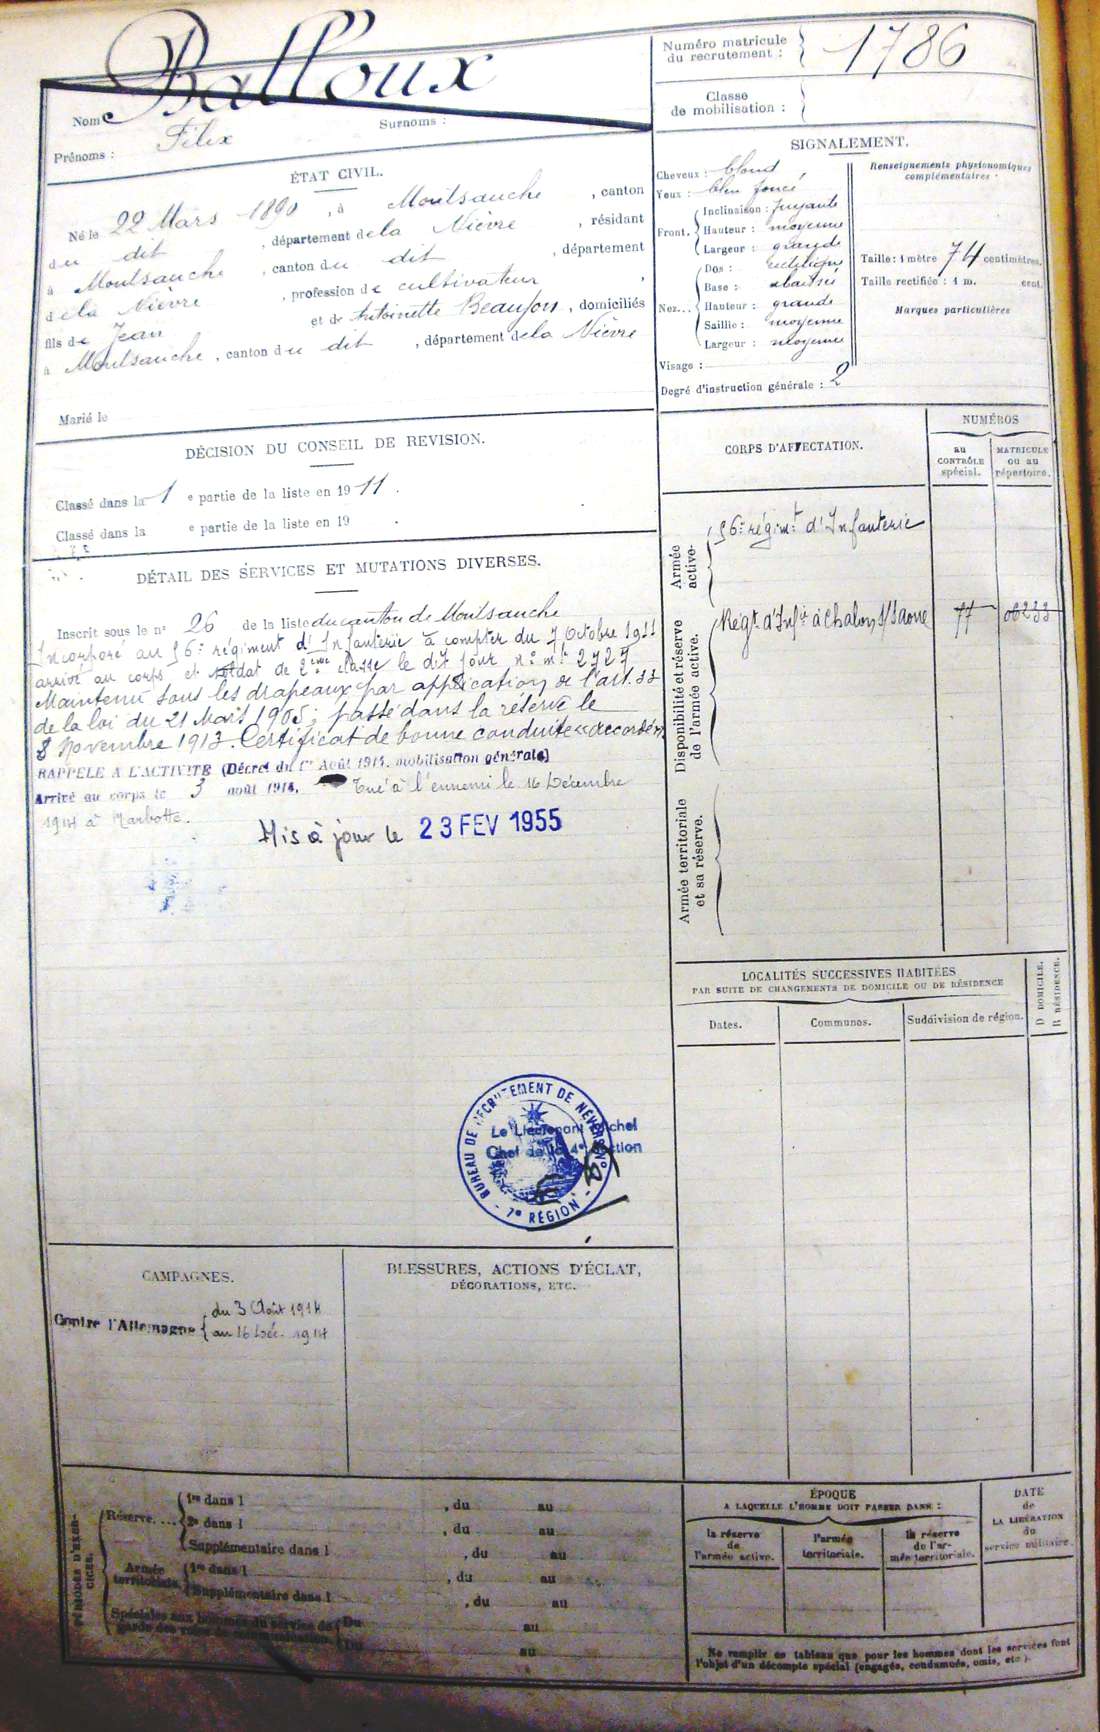 Numéro matricule
du recrutement : 1786
Classe
de mobilisation :
Nom Balloux
Prénoms : Félix Surnoms :
ÉTAT CIVIL.
Né le 22 Mars 1890, à Montsauche, canton
du dit, département de la Nièvre, résidant
à Montsauche, canton du dit, département
de la Nièvre, profession de cultivateur,
fils de Jean et de Antoinette, domiciliés
à Montsauche, canton du dit, département de la Nièvre
Marié le
DÉCISION DU CONSEIL DE REVISION.
Classé dans la 1 e partie de la liste en 1911.
Classé dans la e partie de la liste en 19 .
DÉTAIL DES SERVICES ET MUTATIONS DIVERSES.
Inscrit sous le n° 26 de la liste du canton de Montsauche
Incorporé au 56e régiment d'Infanterie à compter du 7 Octobre 1911
arrivé au corps et soldat de 2ème classe le dit jour n° mle
Maintenu sous les drapeaux par application de l'art. 33
de la loi du 21 Mars 1905; passé dans la réserve le
8 Novembre 1913. Certificat de bonne conduite "accordé"
RAPPELÉ A L'ACTIVITÉ (Décret du 1er Août 1914. mobilisation générale)
Arrivé au corps le 3 août 1914. Tué à l'ennemi le 16 Décembre
1914 à Marbotte.
Mis à jour le 23 FEV 1955
BUREAU DE RECRUTEMENT DE NEVERS
Le Lieutenant Michel
Chef de la 4e Section
7e RÉGION
CAMPAGNES.
Contre l'Allemagne { du 3 Août 1914
au 16 Déc. 1914
BLESSURES, ACTIONS D'ÉCLAT,
DÉCORATIONS, ETC.
SIGNALEMENT.
Cheveux : blond
Yeux : bleu foncé
Front. { Inclinaison : fuyante
Hauteur : moyenne
Largeur : grande
Nez... { Dos : rectiligne
Base : abaissée
Hauteur : grande
Saillie : moyenne
Largeur : moyenne
Visage :
Degré d'instruction générale : 2
Renseignements physionomiques
complémentaires :
Taille : 1 mètre 74 centimètres.
Taille rectifiée : 1 m. cent.
Marques particulières
CORPS D'AFFECTATION.
NUMÉROS
au
CONTRÔLE
spécial.
MATRICULE
ou au
répertoire.
Armée
active.
56e régimt d'Infanterie
Disponibilité et réserve
de l'armée active.
Régt d'Infie à Chalon s/Saône
Armée territoriale
et sa réserve.
LOCALITÉS SUCCESSIVES HABITÉES
PAR SUITE DE CHANGEMENTS DE DOMICILE OU DE RÉSIDENCE
Dates.
Communes.
Subdivision de région.
D DOMICILE.
R RÉSIDENCE.
PÉRIODES D'EXER-
CICES.
Réserve.... { 1re dans l , du au
2e dans l , du au
Supplémentaire dans l , du au
Armée
territoriale. { 1re dans l , du au
Supplémentaire dans l , du au
Spéciales aux hommes du service de { Du au
garde des voies de communication. { Du au
ÉPOQUE
A LAQUELLE L'HOMME DOIT PASSER DANS :
la réserve
de
l'armée active.
l'armée
territoriale.
la réserve
de l'ar-
mée territoriale.
DATE
de
LA LIBÉRATION
du
service militaire.
Ne remplir ce tableau que pour les hommes dont les services font
l'objet d'un décompte spécial (engagés, condamnés, omis, etc.).